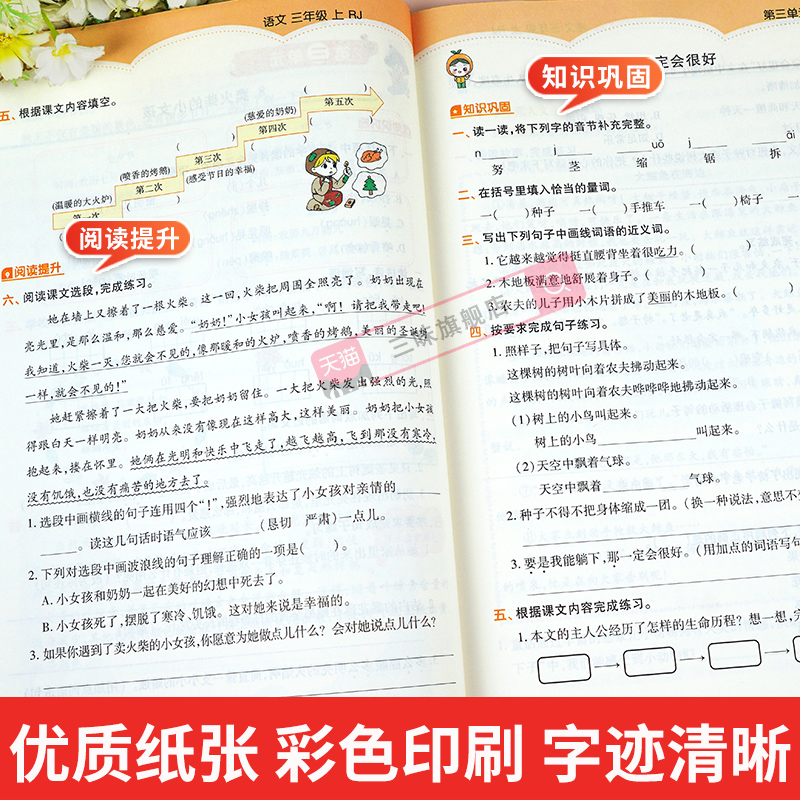 语文 三年级 上 RJ
五、根据课文内容填空。
( )
(慈爱的奶奶) 第五次
( ) 第四次
第三次 ( )
(喷香的烤鹅)
第二次 (感受节日的幸福)
(温暖的大火炉)
第一次 ( )
阅读提升
阅读提升
六、阅读课文选段,完成练习。
她在墙上又擦着了一根火柴。这一回,火柴把周围全照亮了。奶奶出现在
亮光里,是那么温和,那么慈爱。“奶奶!”小女孩叫起来,“啊!请把我带走吧!
我知道,火柴一灭,您就会不见的,像那暖和的火炉,喷香的烤鹅,美丽的圣诞树
一样,就会不见的!”
她赶紧擦着了一大把火柴,要把奶奶留住。一大把火柴发出强烈的光,照
得跟白天一样明亮。奶奶从来没有像现在这样高大,这样美丽。奶奶把小女孩
抱起来,搂在怀里。她俩在光明和快乐中飞走了,越飞越高,飞到那没有寒冷,
没有饥饿,也没有痛苦的地方去了。
1. 选段中画横线的句子连用四个“!”,强烈地表达了小女孩对亲情的______
______。读这几句话时语气应该______(恳切 严肃)一点儿。
2. 下列对选段中画波浪线的句子理解正确的一项是( )。
A. 小女孩和奶奶一起在美好的幻想中死去了。
B. 小女孩死了,摆脱了寒冷、饥饿。这对她来说是幸福的。
3. 如果你遇到了卖火柴的小女孩,你愿意为她做点儿什么?会对她说点儿什么?
第三单
定会很好
知识巩固
知识巩固
一、读一读,将下列字的音节补充完整。
n______ ______ ______uō j______ ______āi
努 茎 缩 锯 拆
二、在括号里填入恰当的量词。
一( )种子 一( )手推车 一( )椅子
三、写出下列句子中画线词语的近义词。
1. 它越来越觉得挺直腰背坐着很吃力。( )
2. 木地板满意地舒展着身子。( )
3. 农夫的儿子用小木片拼成了美丽的木地板。( )
四、按要求完成句子练习。
1. 照样子,把句子写具体。
这棵树的树叶向着农夫拂动起来。
这棵树的树叶向着农夫哗哗哗地拂动起来。
(1)树上的小鸟叫起来。
树上的小鸟______叫起来。
(2)天空中飘着气球。
天空中飘着______气球。
2. 种子不得不把身体缩成一团。(换一种说法,意思不
3. 要是我能躺下,那一定会很好。(用加点的词语写句
五、根据课文内容完成练习。
1. 本文的主人公经历了怎样的生命历程?想一想,完
天猫 三味旗舰店
优质纸张 彩色印刷 字迹清晰